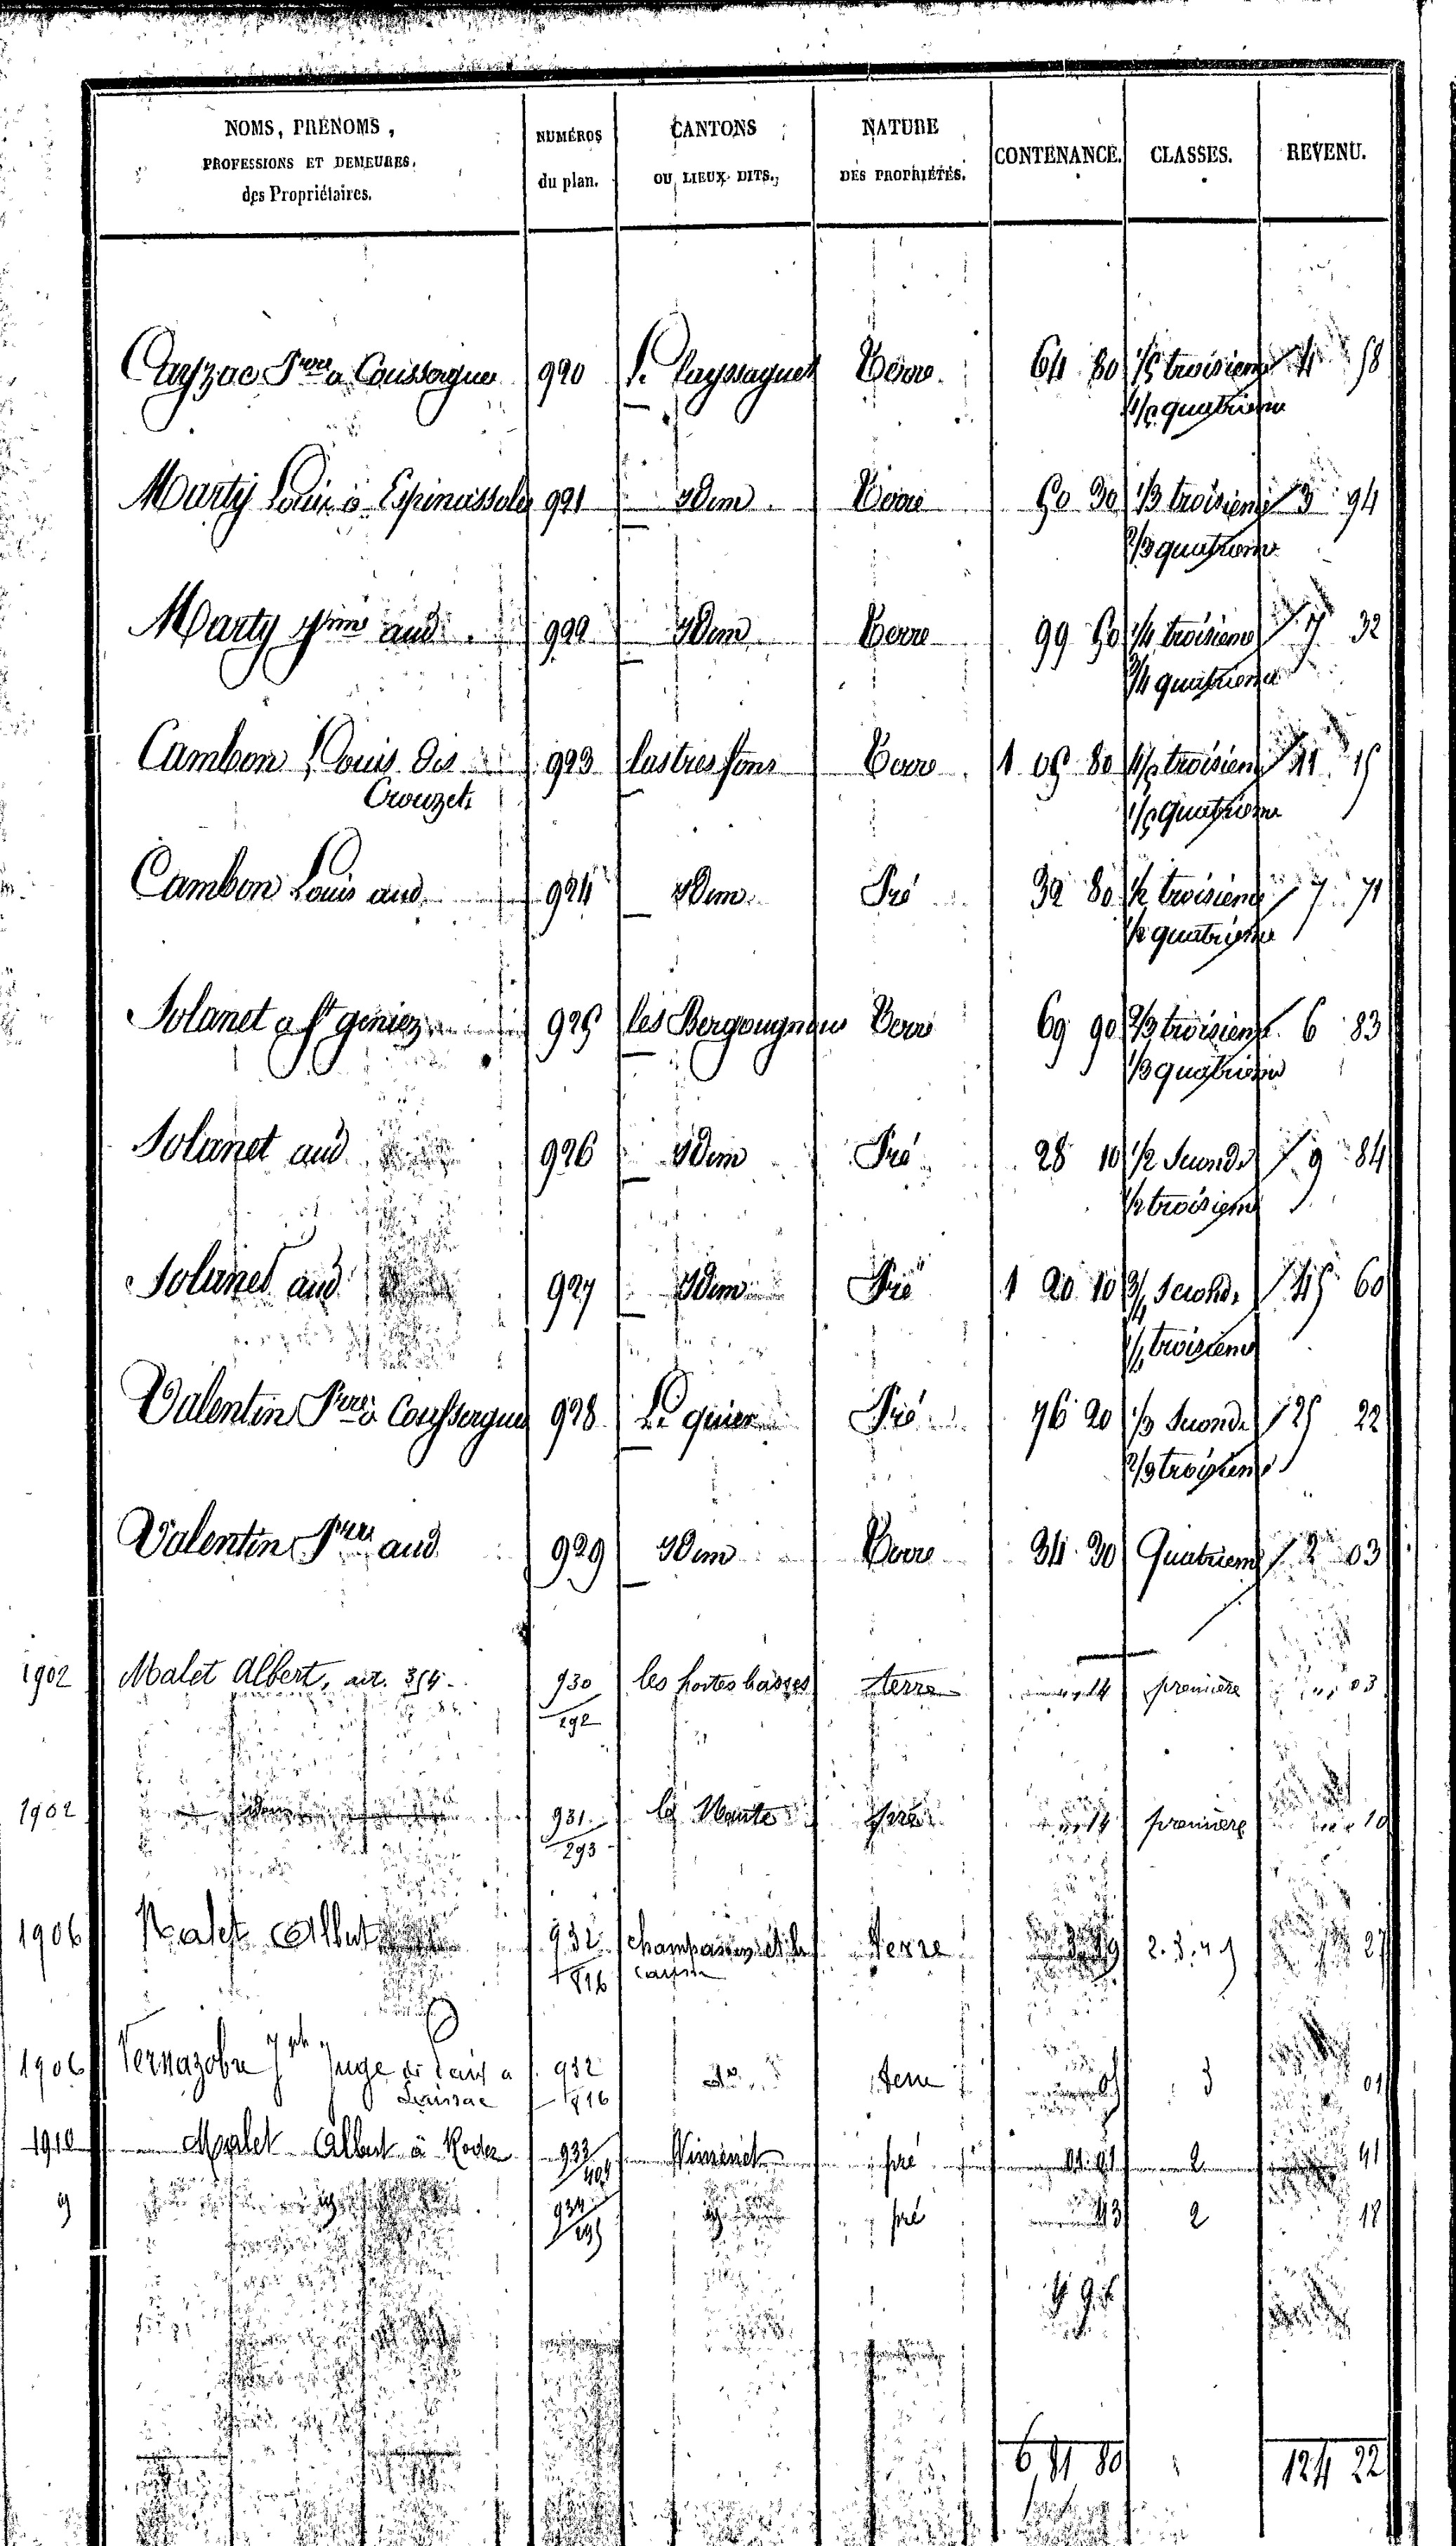 NOMS, PRÉNOMS, PROFESSIONS ET DEMEURES, des Propriétaires. NUMÉROS du plan. CANTONS OU LIEUX DITS. NATURE DES PROPRIÉTÉS. CONTENANCE. CLASSES. REVENU.
Cayzac Pre a Coussergues 920 Terre 64 80 troisieme 4 58
quatrieme
Marty Louis à Espinassoles 921 Idem Terre 50 30 1/3 troisieme 3 94
2/3 quatrieme
Marty aud 922 Idem Terre 99 50 1/4 troisieme 7 32
3/4 quatrieme
Cambon Louis des 923 lastresfons Terre 1 05 80 1/2 troisieme 11 15
Crouzets 1/2 quatrieme
Cambon Louis aud 924 Idem Pré 32 80 1/2 troisieme 7 71
1/2 quatrieme
Solanet a St geniez 925 les Bergougnous Terre 69 90 2/3 troisieme 6 83
1/3 quatrieme
Solanet aud 926 Idem Pré 28 10 1/2 Seconde 9 84
1/2 troisieme
Solanet aud 927 Idem Pré 1 20 10 3/4 Seconde 45 60
1/4 troisieme
Valentin Pre à Coussergues 928 Pré 76 20 1/3 Seconde 25 22
2/3 troisieme
Valentin Pre aud 929 Idem Terre 34 30 Quatrieme 2 03
1902 Malet Albert, art. 354 930 les hortes basses terre 14 première 03
292
1902 idem 931 pré 14 première 10
293
1906 Malet Albert 932 terre 2.3.4.5 27
816
1906 Vernazobre Jph Juge de Paix a 932 do terre 3 01
Laissac 816
1910 Malet Albert à Rodez 933 Viminet pré 01.01 2 41
id 934 id pré 43 2 18
6 81 80 124 22